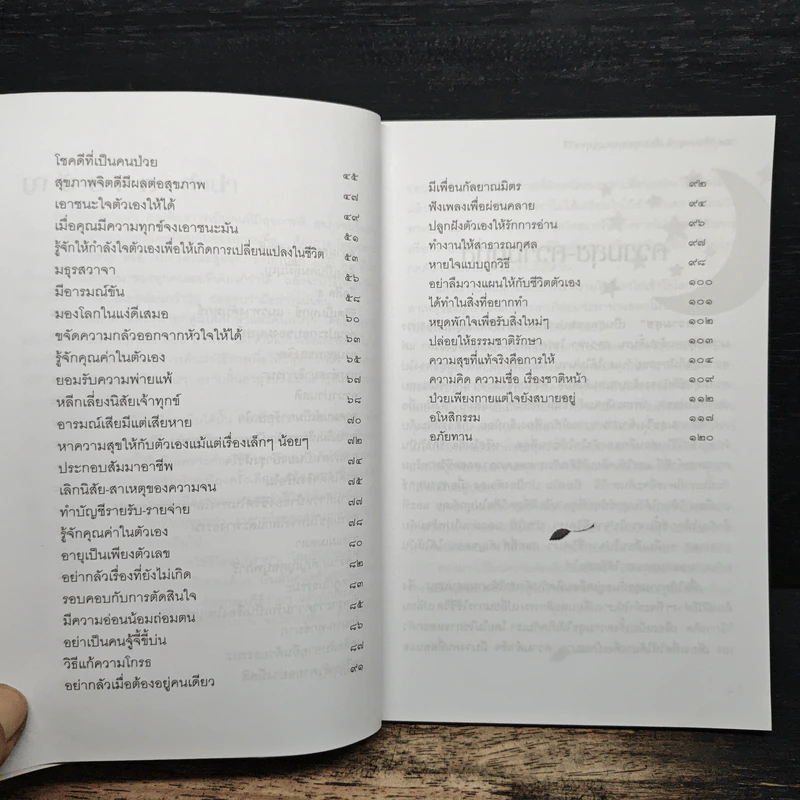 โชคดีที่เป็นคนป่วย ๔๕
สุขภาพจิตดีมีผลต่อสุขภาพ ๔๗
เอาชนะใจตัวเองให้ได้ ๔๙
เมื่อคุณมีความทุกข์จงเอาชนะมัน ๕๑
รู้จักให้กำลังใจตัวเองเพื่อให้เกิดการเปลี่ยนแปลงในชีวิต ๕๓
มธุรสวาจา ๕๖
มีอารมณ์ขัน ๕๘
มองโลกในแง่ดีเสมอ ๖๐
ขจัดความกลัวออกจากหัวใจให้ได้ ๖๓
รู้จักคุณค่าในตัวเอง ๖๕
ยอมรับความพ่ายแพ้ ๖๗
หลีกเลี่ยงนิสัยเจ้าทุกข์ ๖๘
อารมณ์เสียมีแต่เสียหาย ๗๐
หาความสุขให้กับตัวเองแม้แต่เรื่องเล็กๆ น้อยๆ ๗๒
ประกอบสัมมาอาชีพ ๗๔
เลิกนิสัย-สาเหตุของความจน ๗๕
ทำบัญชีรายรับ-รายจ่าย ๗๗
รู้จักคุณค่าในตัวเอง ๗๘
อายุเป็นเพียงตัวเลข ๘๐
อย่ากลัวเรื่องที่ยังไม่เกิด ๘๒
รอบคอบกับการตัดสินใจ ๘๓
มีความอ่อนน้อมถ่อมตน ๘๕
อย่าเป็นคนจู้จี้ขี้บ่น ๘๖
วิธีแก้ความโกรธ ๘๗
อย่ากลัวเมื่อต้องอยู่คนเดียว ๙๑
มีเพื่อนกัลยาณมิตร ๙๒
ฟังเพลงเพื่อผ่อนคลาย ๙๔
ปลูกฝังตัวเองให้รักการอ่าน ๙๖
ทำงานให้สาธารณกุศล ๙๗
หายใจแบบถูกวิธี ๙๘
อย่าลืมวางแผนให้กับชีวิตตัวเอง ๑๐๐
ได้ทำในสิ่งที่อยากทำ ๑๐๑
หยุดพักใจเพื่อรับสิ่งใหม่ๆ ๑๐๒
ปล่อยให้ธรรมชาติรักษา ๑๐๓
ความสุขที่แท้จริงคือการให้ ๑๐๔
ความคิด ความเชื่อ เรื่องชาติหน้า ๑๐๙
ป่วยเพียงกายแต่ใจยังสบายอยู่ ๑๑๒
อโหสิกรรม ๑๑๗
อภัยทาน ๑๒๐